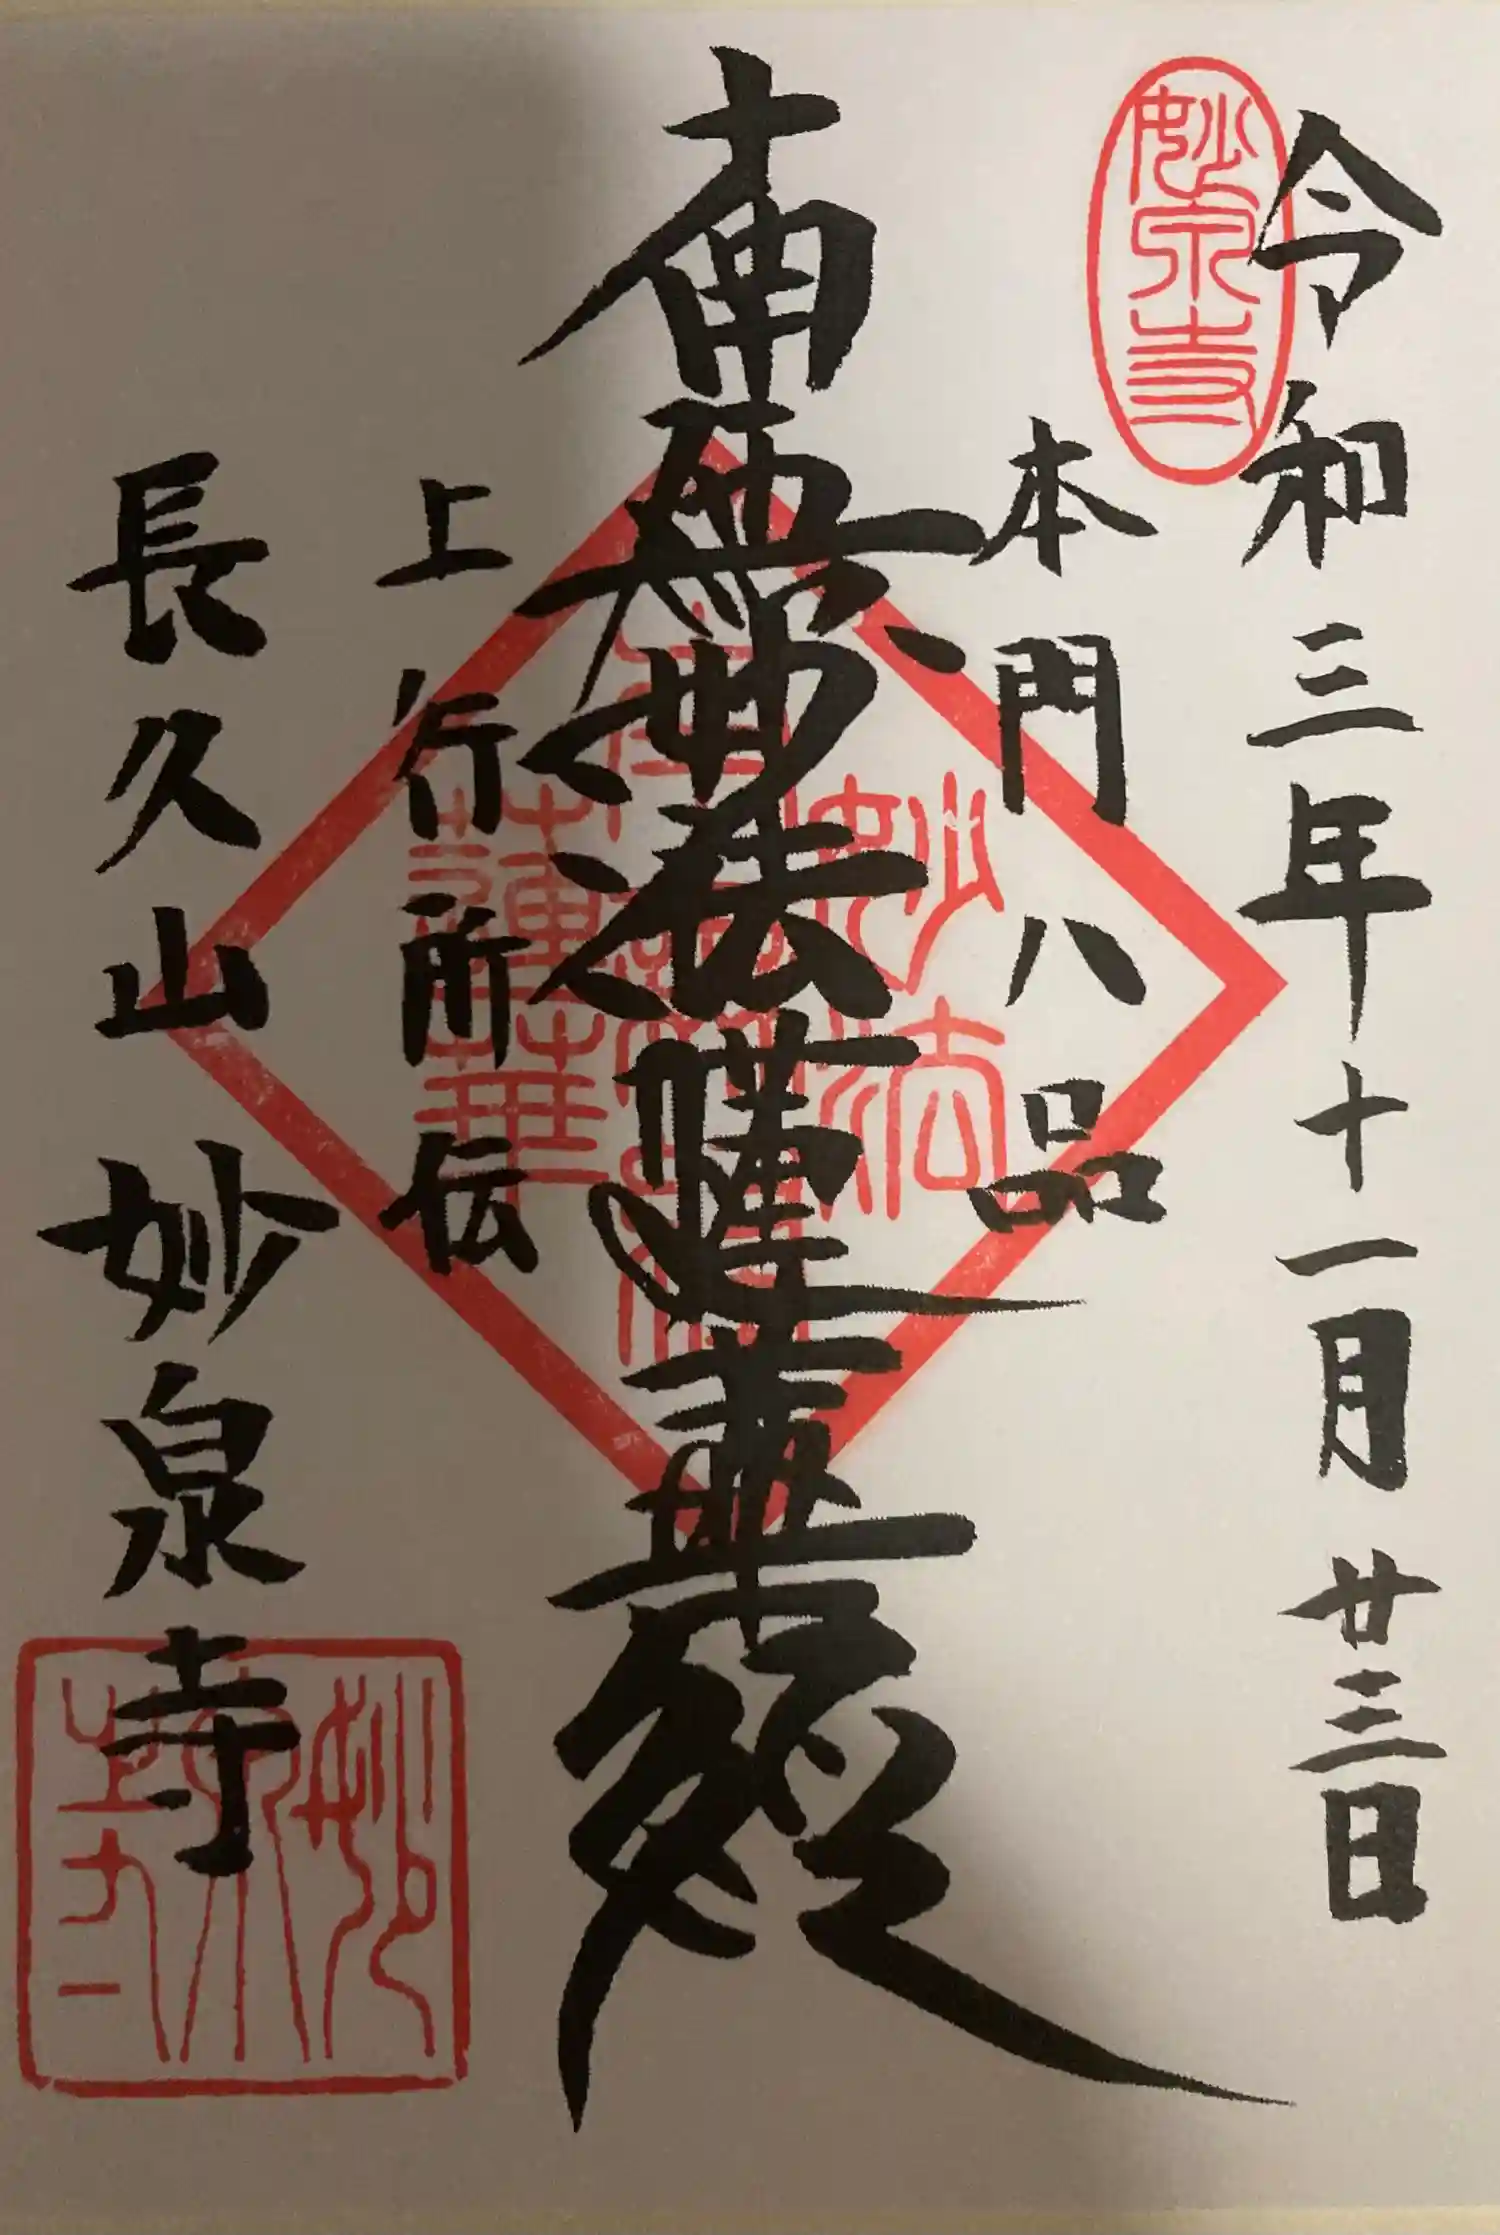 令和三年十一月廿三日
妙泉寺
本門八品
南無妙法蓮華経
上行所伝
長久山 妙泉寺
妙法
蓮華